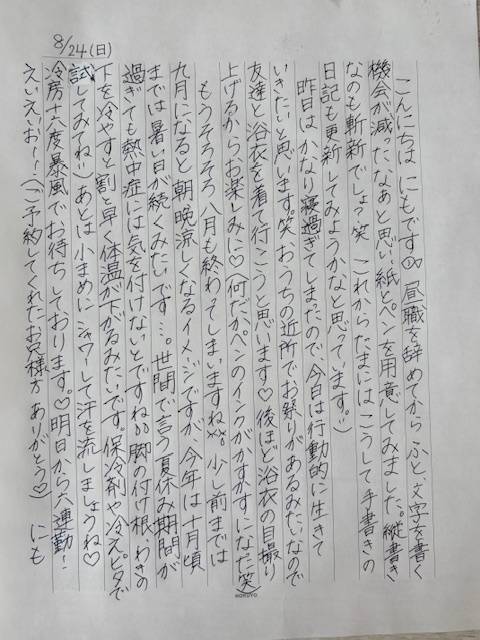 8/24(日)
こんにちは にもです。昼職を辞めてからふと、文字を書く
機会が減ったなぁと思い紙とペンを用意してみました。縦書き
なのも斬新でしょっ笑 これからたまにはこうして手書きの
日記も更新してみようかなと思っています。:)
昨日はかなり寝過ぎてしまたので、今日は行動的に生きて
いきたいと思います。笑 おうちの近所でお祭りがあるみたいなので
友達と浴衣を着て行こうと思います♡後ほど浴衣の自撮り
上げるからお楽しみに♡(何だかペンのインクがかすかすになた笑)
もうそろそろ八月も終わってしまいますね××。少し前までは
九月になると朝晩涼しくなるイメージですが、今年は十月頃
までは暑い日が続くみたいです…。世間で言う夏休み期間が
過ぎても熱中症には気を付けないとですね。脚の付け根、わきの
下を冷やすと割と早く体温が下がるみたいです。保冷剤や冷えピタで
試してみてね:)あとは小まめにシャワーして汗を流しましょうね♡
冷房十六度暴風でお待ちしております。♡明日から六連勤!
えいえいおー!(ご予約してくれたお兄様方ありがとう♡) にも
KOKUYO